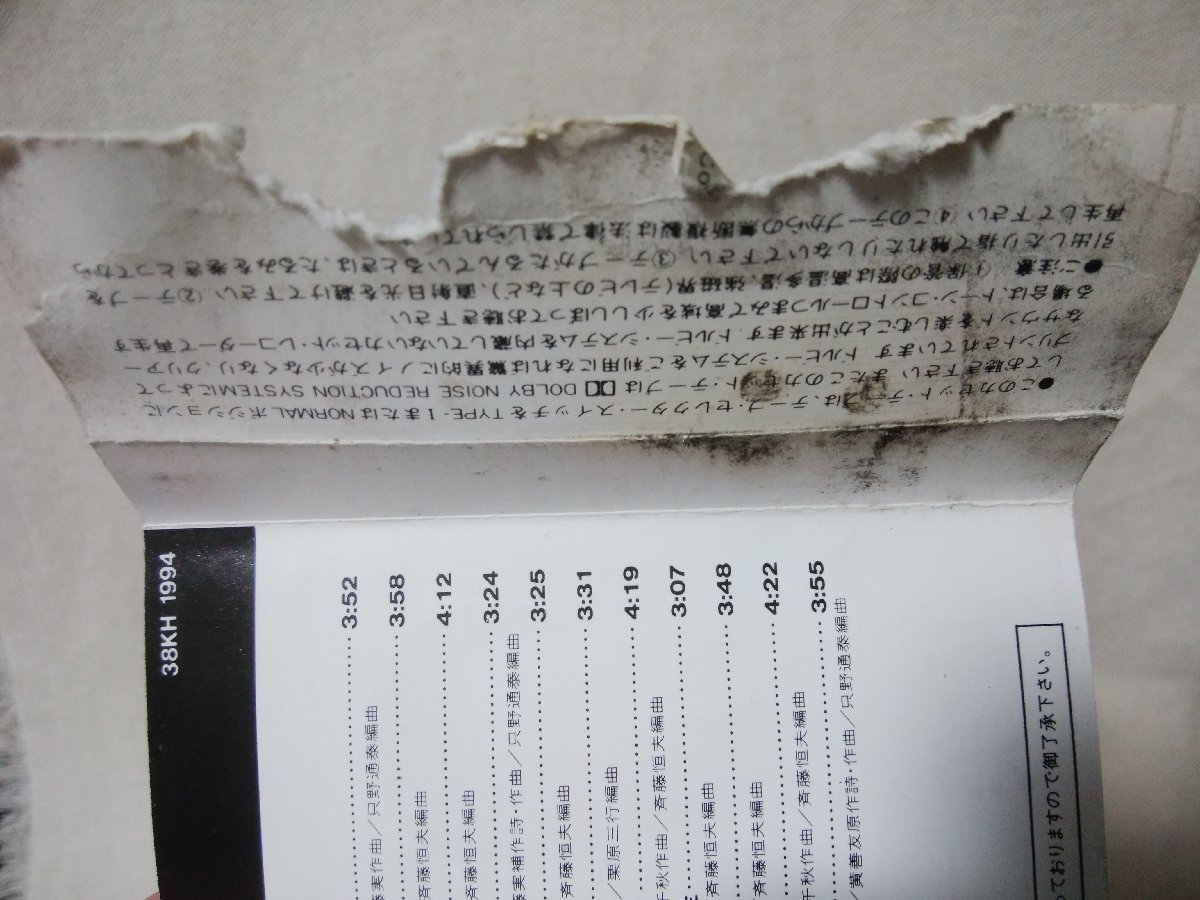 38KH 1994
3:52
藤実作曲/只野通泰編曲
3:58
斉藤恒夫編曲
4:12
斉藤恒夫編曲
3:24
藤実補作詩・作曲/只野通泰編曲
3:25
斉藤恒夫編曲
3:31
/栗原三行編曲
4:19
千秋作曲/斉藤恒夫編曲
3:07
斉藤恒夫編曲
3:48
斉藤恒夫編曲
4:22
千秋作曲/斉藤恒夫編曲
3:55
/黄善友原作詩・作曲/只野通泰編曲
っておりますので御了承下さい。
●このカセット・テープは、テープ・セレクター・スイッチをTYPE・Iまたは NORMALポジションに
してお聴き下さい また このカセット・テープは DOLBY NOISE REDUCTION SYSTEMによって
プリントされています ドルビー・システムをご利用になれば驚異的にノイズが少なくなり、クリアー
なサウンドを楽しむことが出来ます. ドルビー・システムを内蔵していないカセット・レコーダーで再生す
る場合は、トーン・コントロールつまみで高域を少ししぼってお聴き下さい
●ご注意 ①保管の際は高温多湿、強磁界(テレビの上など)、直射日光を避けて下さい. ②テープを
引出したり指で触れたりしないで下さい. ③テープがたるんでいるときは、たるみを巻きとってから
再生して下さい ④このテープからの無断複製は法律で禁じられてい